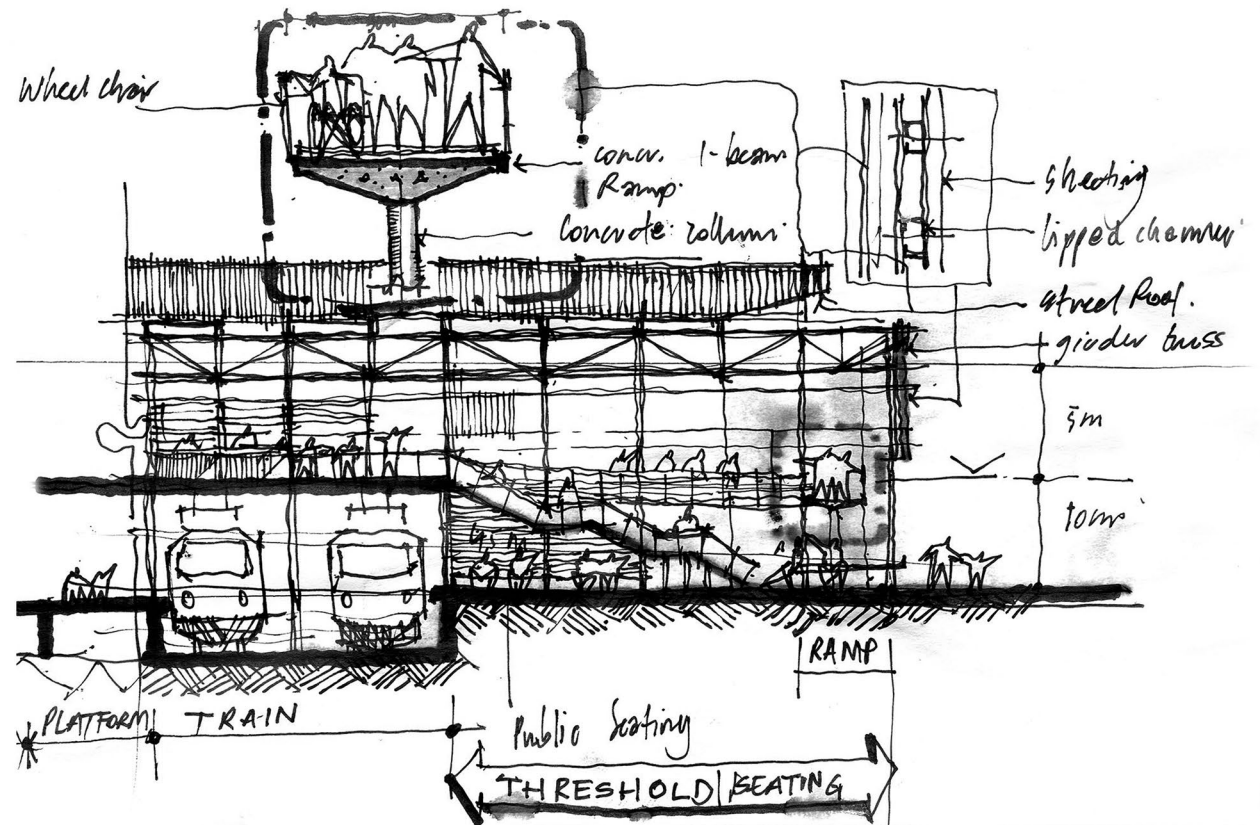 Wheel chair
concr. I-beam
Ramp.
Concrete collumn
sheating
lipped channel
steel Roof.
girder truss
5m
PLATFORM
TRAIN
RAMP
Public Seating
THRESHOLD | SEATING